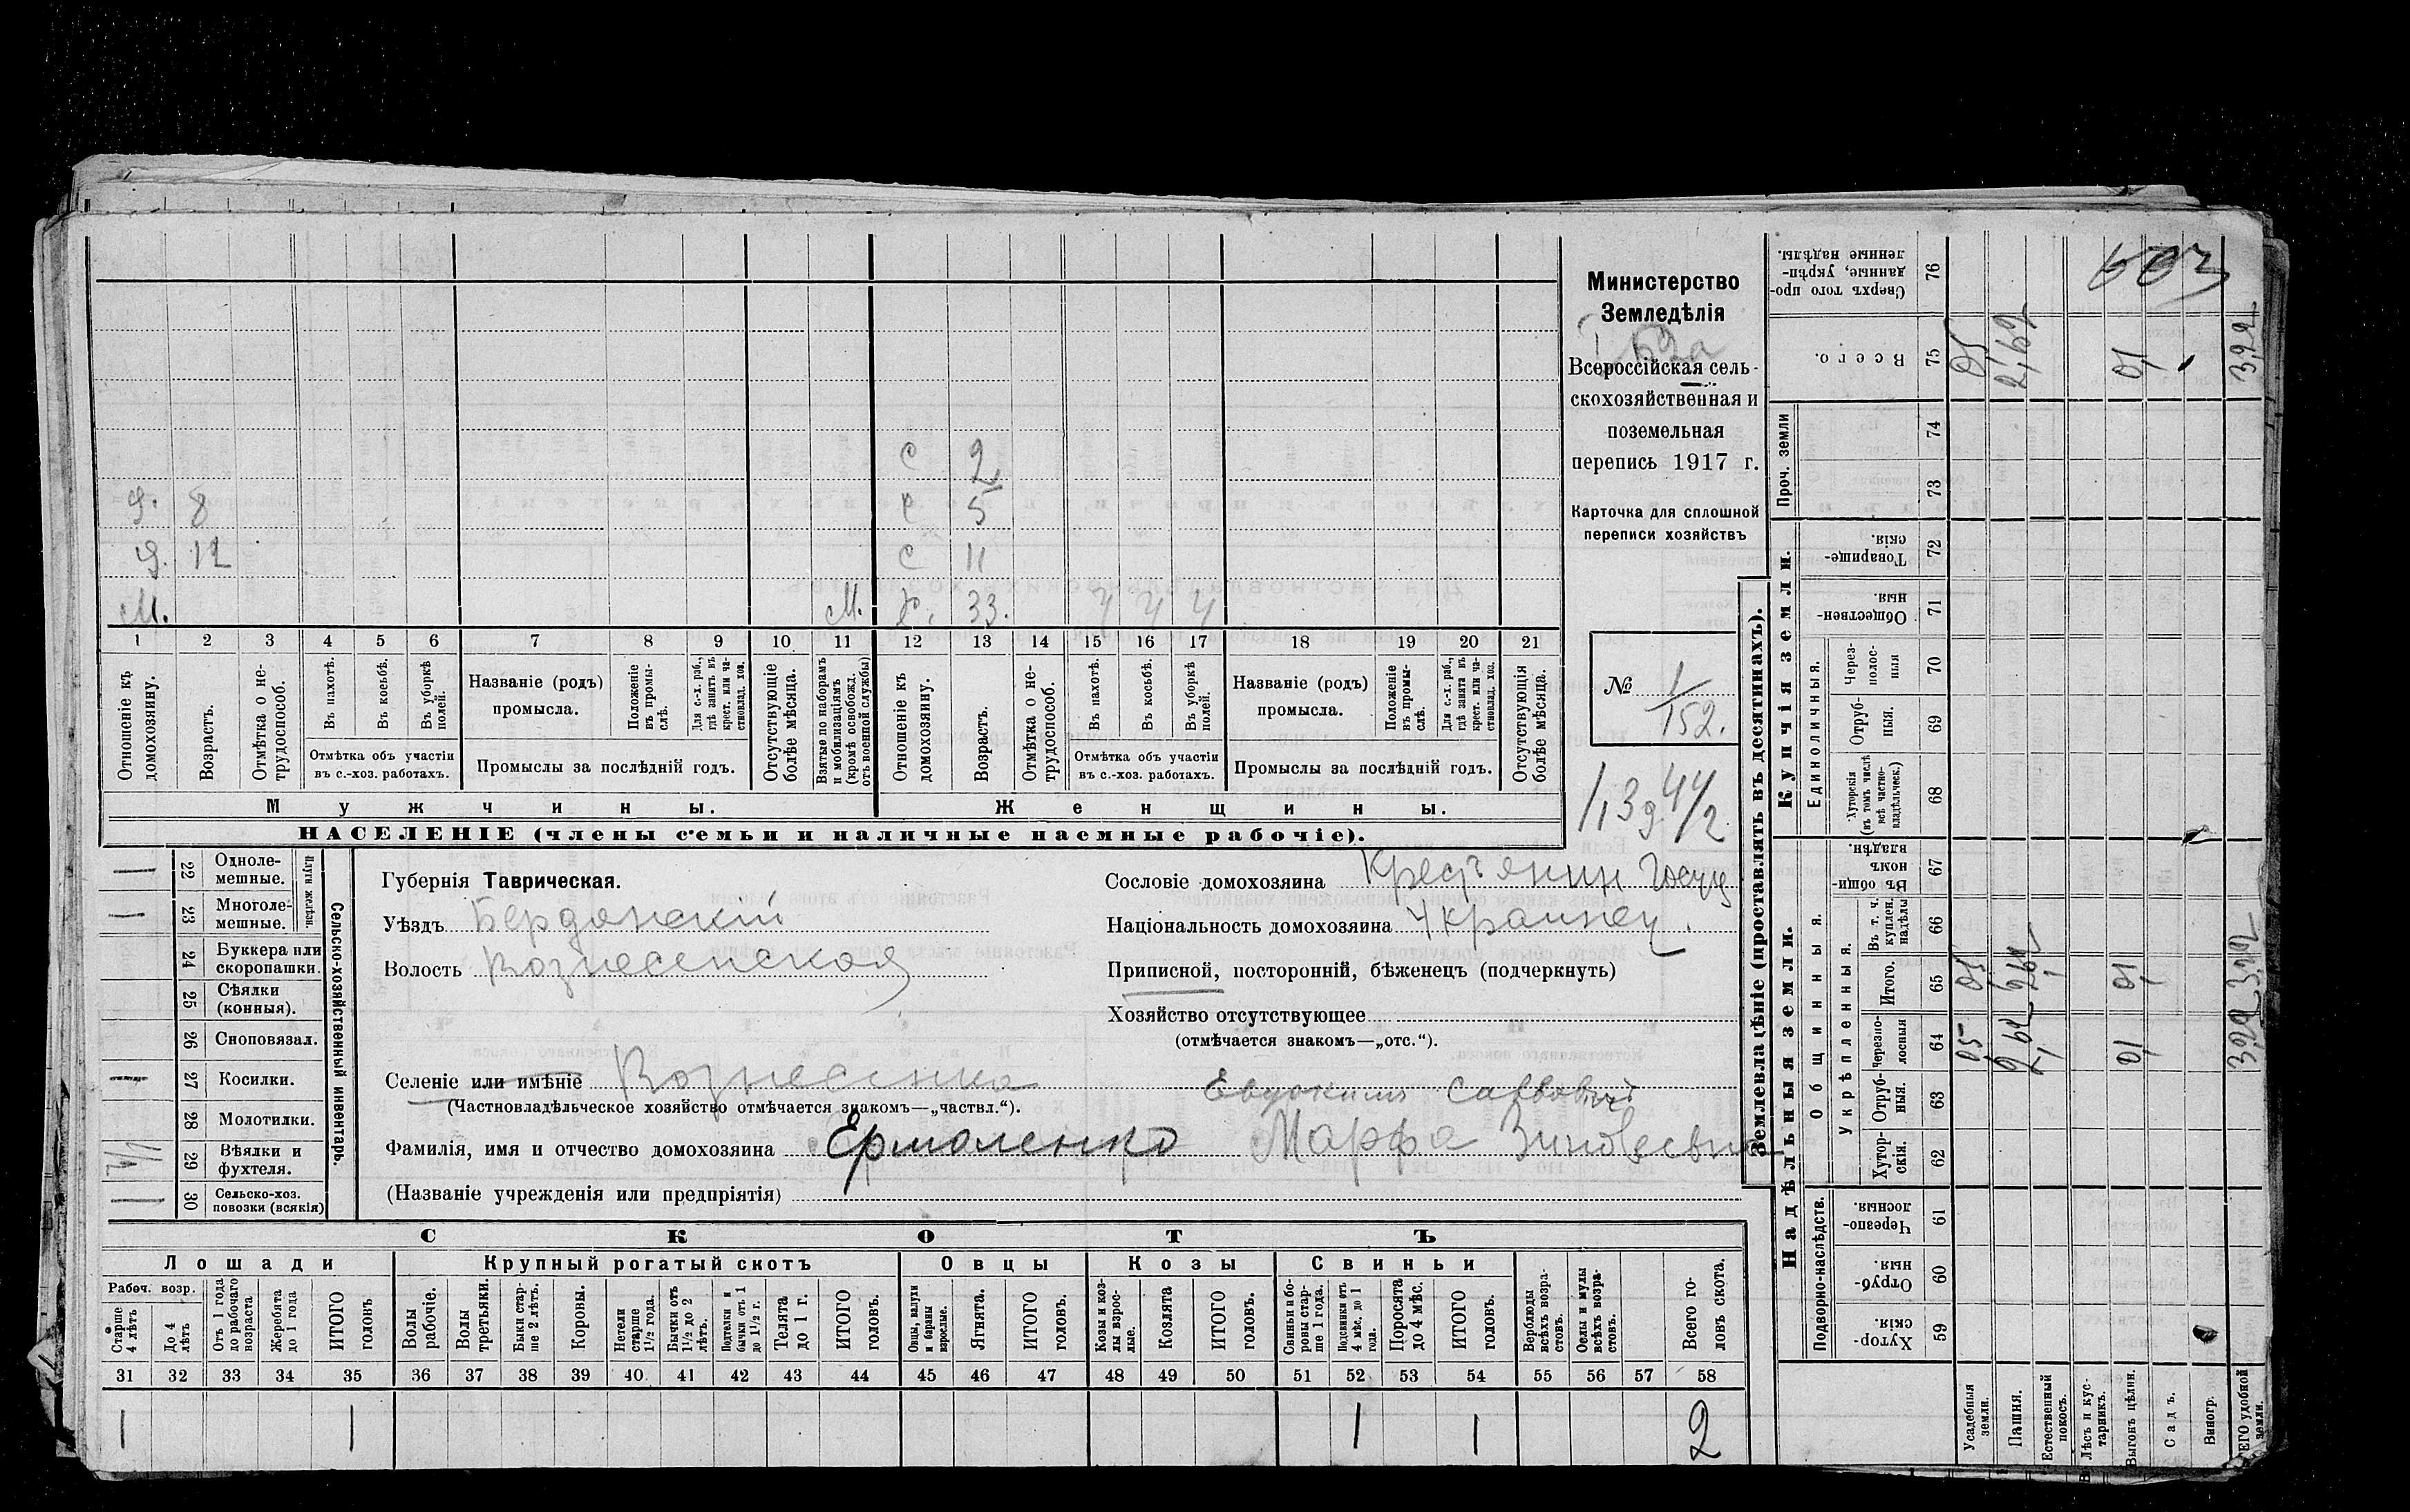 с 2
9. 8 с 5
9. 12 с 11
М. М. х. 33. Ч Ч Ч
1 2 3 4 5 6 7 8 9 10 11 12 13 14 15 16 17 18 19 20 21
Отношеніе къ домохозяину.
Возрастъ.
Отмѣтка о не-
трудоспособ.
Въ пахотѣ.
Въ косьбѣ.
Въ уборкѣ полей.
Отмѣтка объ участіи
въ с.-хоз. работахъ.
Названіе (родъ)
промысла.
Положеніе въ промы-
слѣ.
Для с.-х. раб., гдѣ занятъ въ крест. или ча-
стновлад. хоз.
Промыслы за послѣдній годъ.
Отсутствующіе болѣе мѣсяца.
Взятые по наборамъ и мобилизаціямъ (кромѣ освобожд. отъ военной службы)
Отношеніе къ домохозяину.
Возрастъ.
Отмѣтка о не-
трудоспособ.
Въ пахотѣ.
Въ косьбѣ.
Въ уборкѣ полей.
Отмѣтка объ участіи
въ с.-хоз. работахъ.
Названіе (родъ)
промысла.
Положеніе въ промы-
слѣ.
Для с.-х. раб., гдѣ занята въ крест. или ча-
стновлад. хоз.
Промыслы за послѣдній годъ.
Отсутствующія болѣе мѣсяца.
Мужчины. Женщины.
НАСЕЛЕНІЕ (члены семьи и наличные наемные рабочіе).
Министерство
Земледѣлія
Всероссійская сель-
скохозяйственная и
поземельная
перепись 1917 г.
Карточка для сплошной
переписи хозяйствъ
№ 1/152.
Сельско-хозяйственный инвентарь.
Плуги желѣзн.
1 22 Одноле-
мешные.
1 23 Многоле-
мешные.
24 Буккера или
скоропашки.
25 Сѣялки
(конныя).
26 Сноповязал.
27 Косилки.
28 Молотилки.
29 Вѣялки и
фухтеля.
1 30 Сельско-хоз.
повозки (всякія)
Губернія Таврическая.
Уѣздъ Бердянскій
Волость Вознесенская
Сословіе домохозяина Крестьянин
Національность домохозяина Украинец.
Приписной, посторонній, бѣженецъ (подчеркнуть)
Хозяйство отсутствующее
(отмѣчается знакомъ—„отс.“).
Селеніе или имѣніе Вознесенка
(Частновладѣльческое хозяйство отмѣчается знакомъ—„частвл.“).
Евдокимъ Саввовичъ
Фамилія, имя и отчество домохозяина Ермоленко Марфа Зиновьевна
(Названіе учрежденія или предпріятія)
СКОТЪ
Лошади Крупный рогатый скотъ Овцы Козы Свиньи
Рабоч. возр.
Старше 4 лѣтъ
До 4 лѣтъ
Отъ 1 года до рабочаго возраста
Жеребята до 1 года
ИТОГО головъ
Волы рабочіе.
Волы третьяки.
Быки стар-
ше 2 лѣтъ.
Коровы.
Нетели старше 1½ года.
Бычки отъ 1½ до 2 лѣтъ.
Подтелки и бычки отъ 1 до 1½ г.
Телята до 1 г.
ИТОГО головъ.
Овцы, валухи и бараны взрослые.
Ягнята.
ИТОГО головъ.
Козы и коз-
лы взрос-
лые.
Козлята
ИТОГО головъ.
Свиньи и бо-
ровы стар-
ше 1 года.
Подсвинки отъ 4 мѣс. до 1 года.
Поросята до 4 мѣс.
ИТОГО головъ.
Верблюды всѣхъ возра-
стовъ.
Ослы и мулы всѣхъ возра-
стовъ.
Всего го-
ловъ скота.
31 32 33 34 35 36 37 38 39 40 41 42 43 44 45 46 47 48 49 50 51 52 53 54 55 56 57 58
1 1 1 1 2
Землевладѣніе (проставлять въ десятинахъ).
Надѣльныя земли.
Купчія земли.
Проч. земли
Подворно-наслѣдств.
Общинныя.
Укрѣпленныя.
Единоличныя.
Хутор-
скія. 59
Отруб-
ныя. 60
Черезпо-
лосныя. 61
Хутор-
скія. 62
Отруб-
ныя. 63
Черезпо-
лосныя 64
Итого. 65
Въ т. ч. куплен. надѣлы 66
Въ общин-
номъ владѣн. 67
Хуторскія (въ томъ числѣ всѣ частно-
владѣльческ.) 68
Отруб-
ныя. 69
Через-
полос-
ныя 70
Обществен-
ныя. 71
Товарище-
скія. 72
73
74
Всего. 75
Сверхъ того про-
данные, укрѣп-
ленные надѣлы. 76
Усадебныя земли.
Пашня.
Естественный покосъ.
Лѣсъ и кус-
тарникъ.
Выгонъ цѣлин.
Садъ.
Виногр.
ВСЕГО удобной земли.